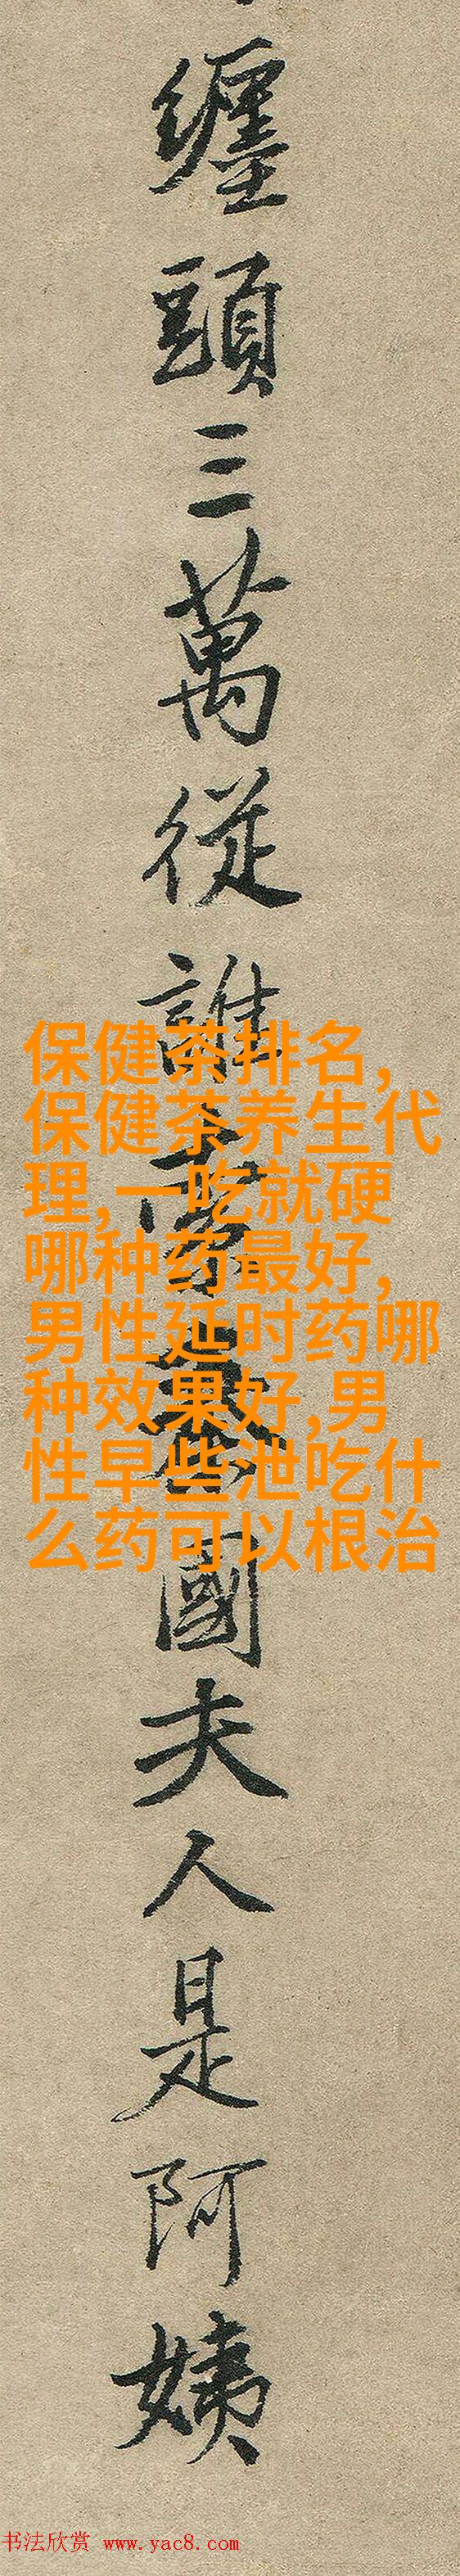 纏頭三萬從誰
國夫人是阿姨
保健茶排名,
保健茶养生代
理,一吃就硬
哪种药最好,
男性延时药哪
种效果好,男
性早些泄吃什
么药可以根治
书法欣赏 www.yac8.com